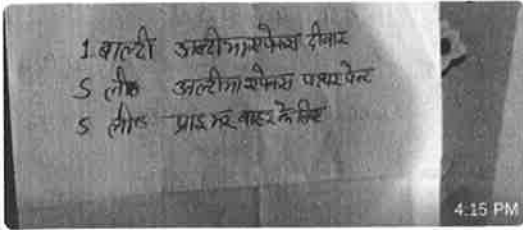 1 बाल्टी अल्टीमा एपेक्स दीवार
5 लीट अल्टीमा एपेक्स पत्थर पेन्ट
5 लीट प्राइमर बाहर के लिए
4:15 PM